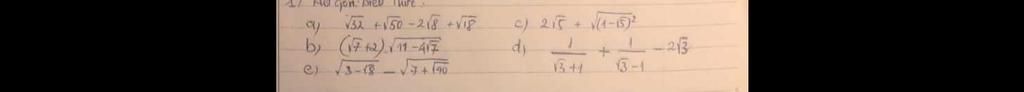 1/ Rút gọn biểu thức:
a) √32 + √50 - 2√8 + √18 c) 2√5 + √(1-√5)²
b) (√7+2).√11-4√7 d) 1/(√3+1) + 1/(√3-1) - 2√3
e) √3-√8 - √7+√40